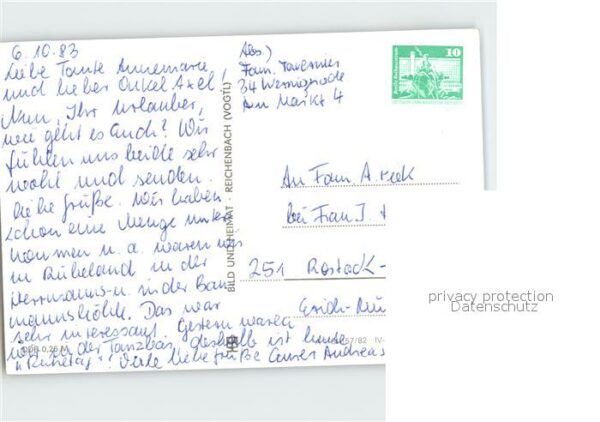 6.10.83
Liebe Tante Annemarie
und lieber Onkel Axel!
Nun, Ihr Urlauber,
wie geht es Euch? Wir
fühlen uns beide sehr
wohl und senden
liebe Grüße. Wir haben
schon eine Menge unter-
nommen u. a. waren wir
in Rübeland in der
Hermanns- u. in der Bau-
mannshöhle. Das war
sehr interessant. Gestern waren
wir zu der Tanzbar, deshalb ist heute
"Ruhetag"! Viele liebe Grüße Andreas
Abs.)
Fam. Tavernier
34 Wernigerode
Am Markt 4
10
BILD UND HEIMAT · REICHENBACH (VOGTL)
An Fam. A.
bei Frau I.
251 Rostock-
DDR 0,25 M
57/82 IV-
privacy protection
Datenschutz